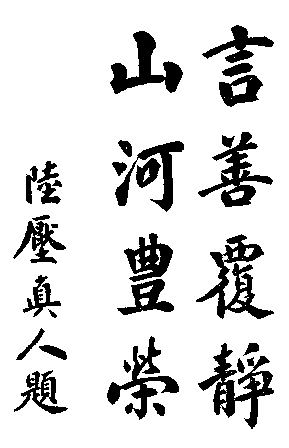 言善覆靜
山河豊榮
陸壓真人題